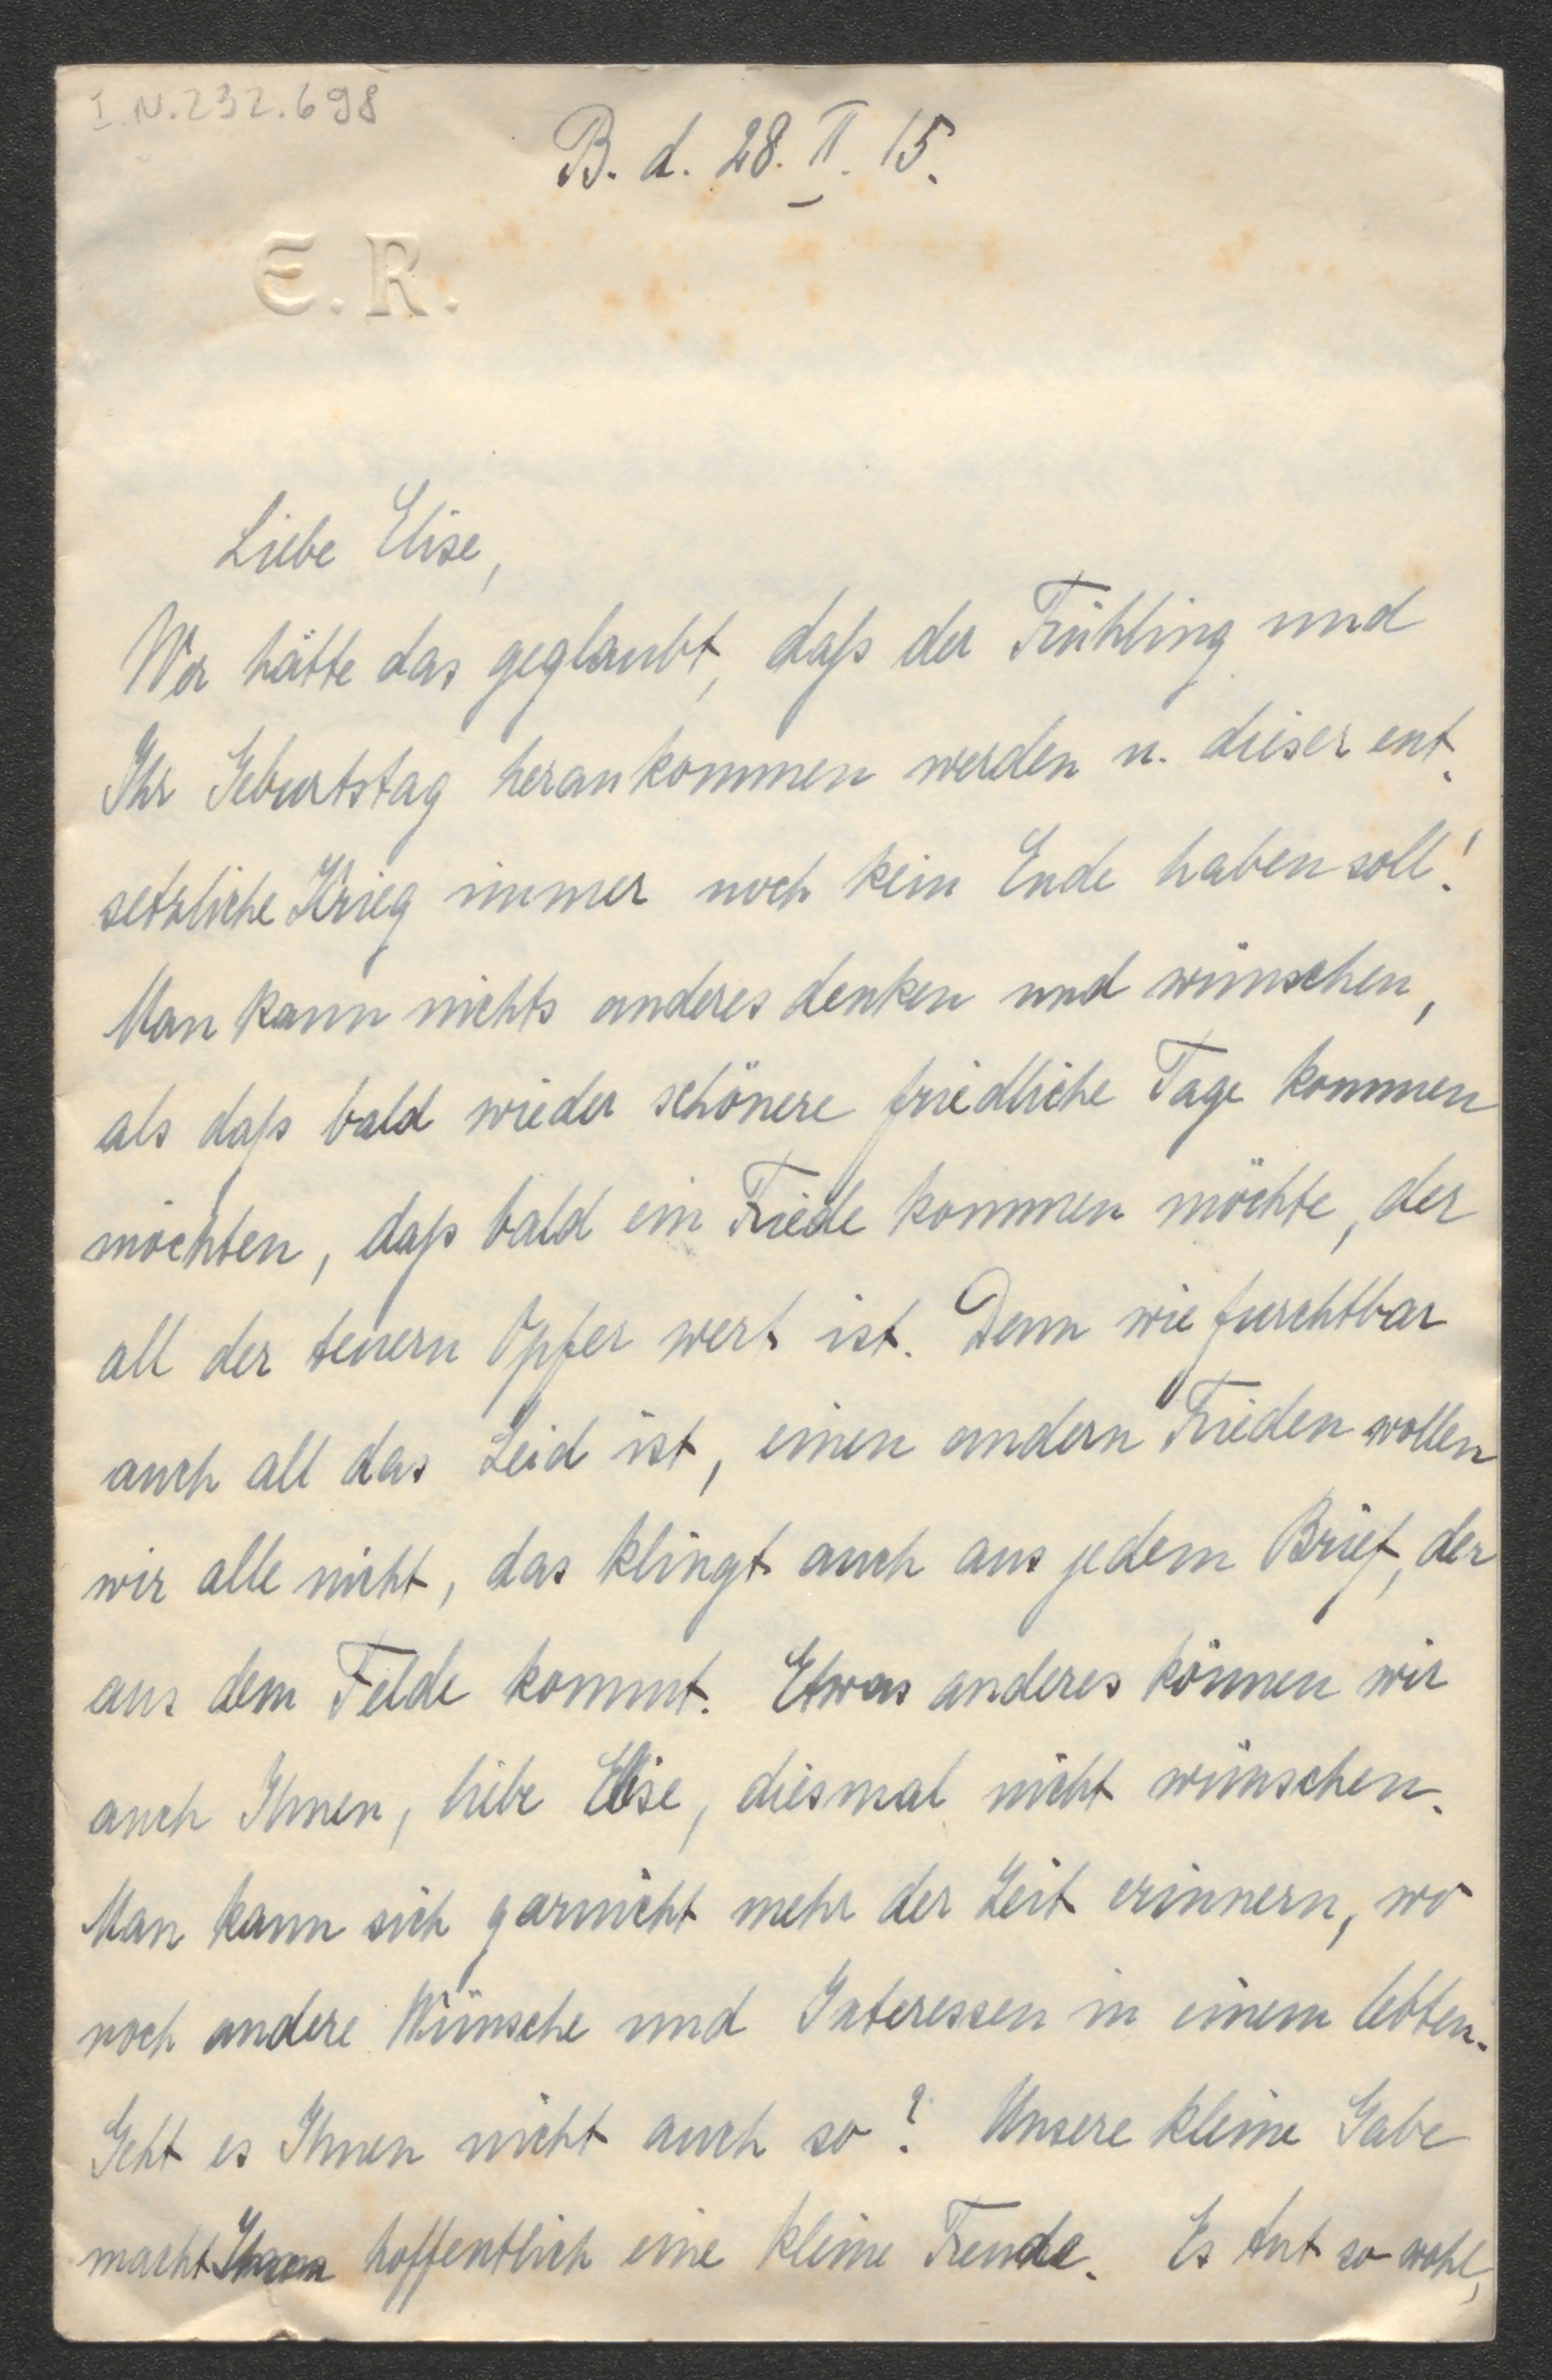 I.N.232.698
B. d. 28. II. 15.
E.R.
Liebe Elise,
Wer hätte das geglaubt, daſs der Frühling und
Ihr Geburtstag herankommen werden u. dieser ent-
setzliche Krieg immer noch kein Ende haben soll!
Man kann nichts anderes denken und wünschen,
als daſs bald wieder schönere friedliche Tage kommen
möchten, daſs bald ein Friede kommen möchte, der
all der teuern Opfer wert ist. Denn wie furchtbar
auch all das Leid ist, einen andern Frieden wollen
wir alle nicht, das klingt auch aus jedem Brief, der
aus dem Felde kommt. Etwas anderes können wir
auch Ihnen, liebe Elise, diesmal nicht wünschen.
Man kann sich garnicht mehr der Zeit erinnern, wo
noch andere Wünsche und Interessen in einem lebten.
Geht es Ihnen nicht auch so? Unsere kleine Gabe
macht Ihnen hoffentlich eine kleine Freude. Es tut so wohl,